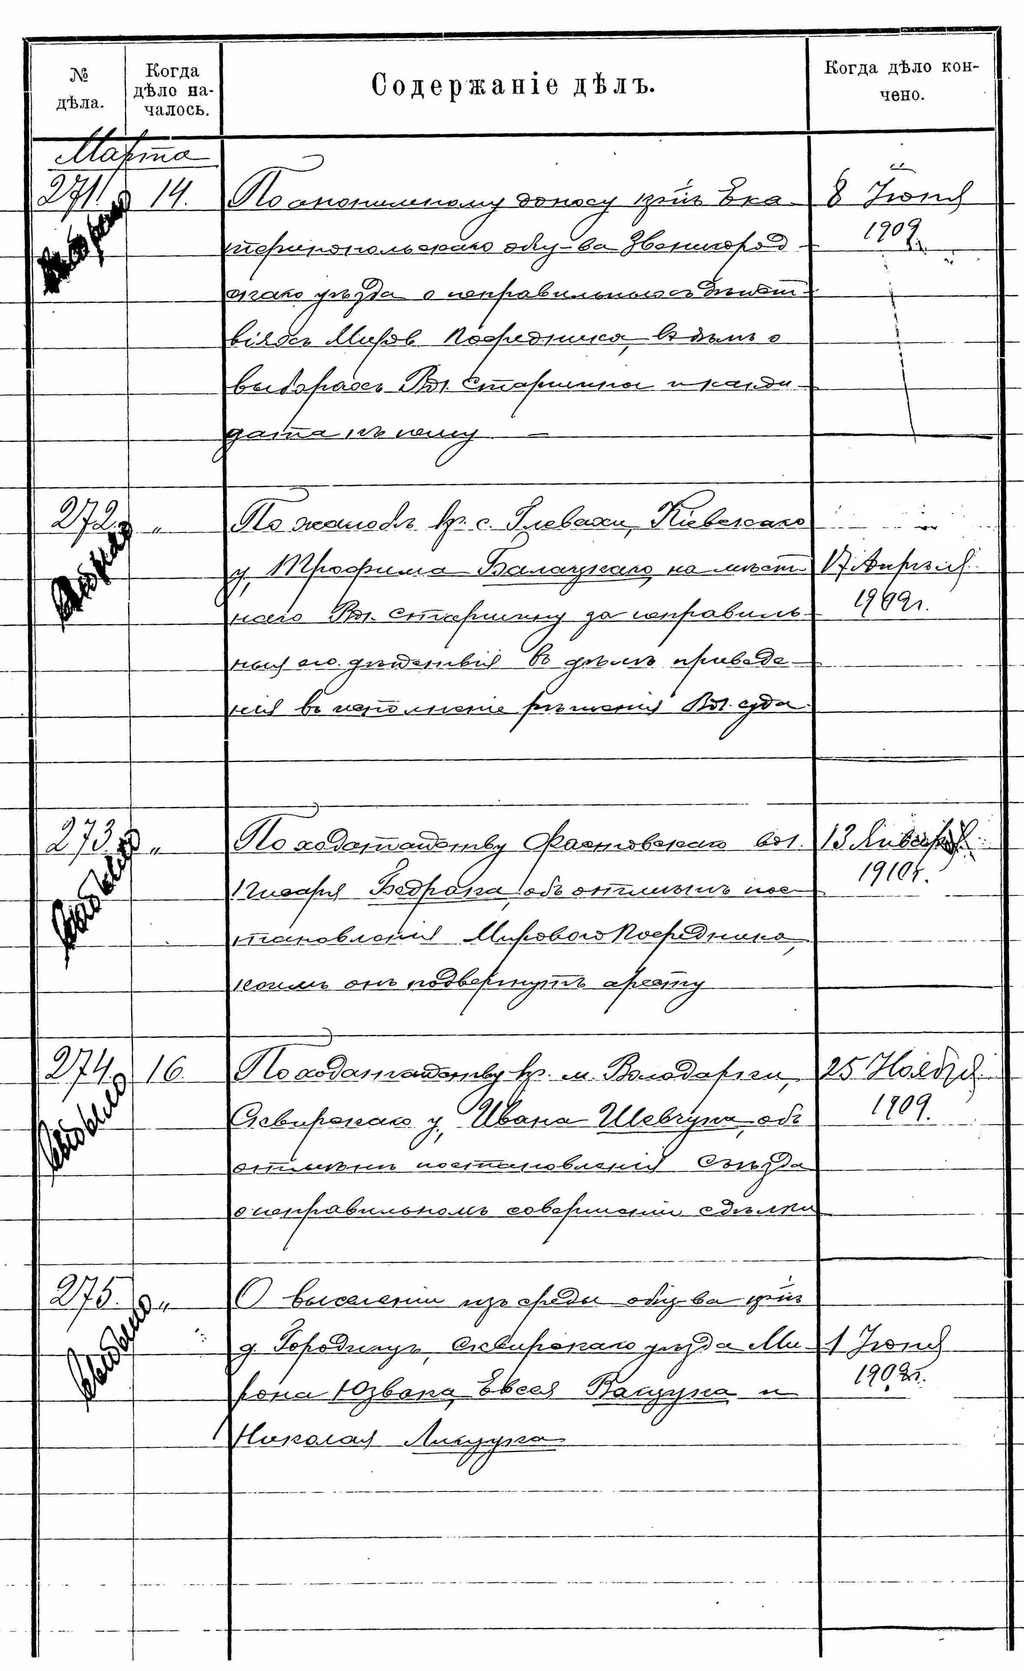 № дѣла.
Когда дѣло началось.
Содержаніе дѣлъ.
Когда дѣло кончено.
Марта
271. 14.
Выбыло
По анонимному доносу кр-нъ Ека-
теринопольскаго общ-ва Звенигород-
скаго уѣзда о неправильныхъ дѣйст-
віяхъ Миров Посредника, въ дѣлѣ о
выборахъ Вол. старшины и канди-
дата къ нему —
8 Іюня
1909г.
272. „
Выбыло
По жалобѣ кр. с. Глевахи, Кіевскаго
у, Трофима Балацкаго, на мѣст-
наго Вол. старшину за неправиль-
ныя его дѣйствія въ дѣлѣ приведе-
нія въ исполненіе рѣшенія Вол. суда.
17 Апрѣля
1909г.
273. „
Выбыло
По ходатайству Фастовскаго вол.
писаря Бедрака, объ отмѣнѣ пос-
тановленія Мирового Посредника,
коимъ онъ подвергнутъ аресту
13 Января
1910г.
274. 16.
Выбыло
По ходатайству кр. м. Володарки,
Сквирскаго у, Ивана Шевчука, объ
отмѣнѣ постановленія Съѣзда
о неправильномъ совершеніи сдѣлки
25 Ноября
1909.
275. „
Выбыло
О выселеніи изъ среды общ-ва кр-нъ
д. Городищъ, Сквирскаго уѣзда Ми-
рона Юзвака, Евсея Ващука и
Николая Лищука
1 Іюня
1909г.